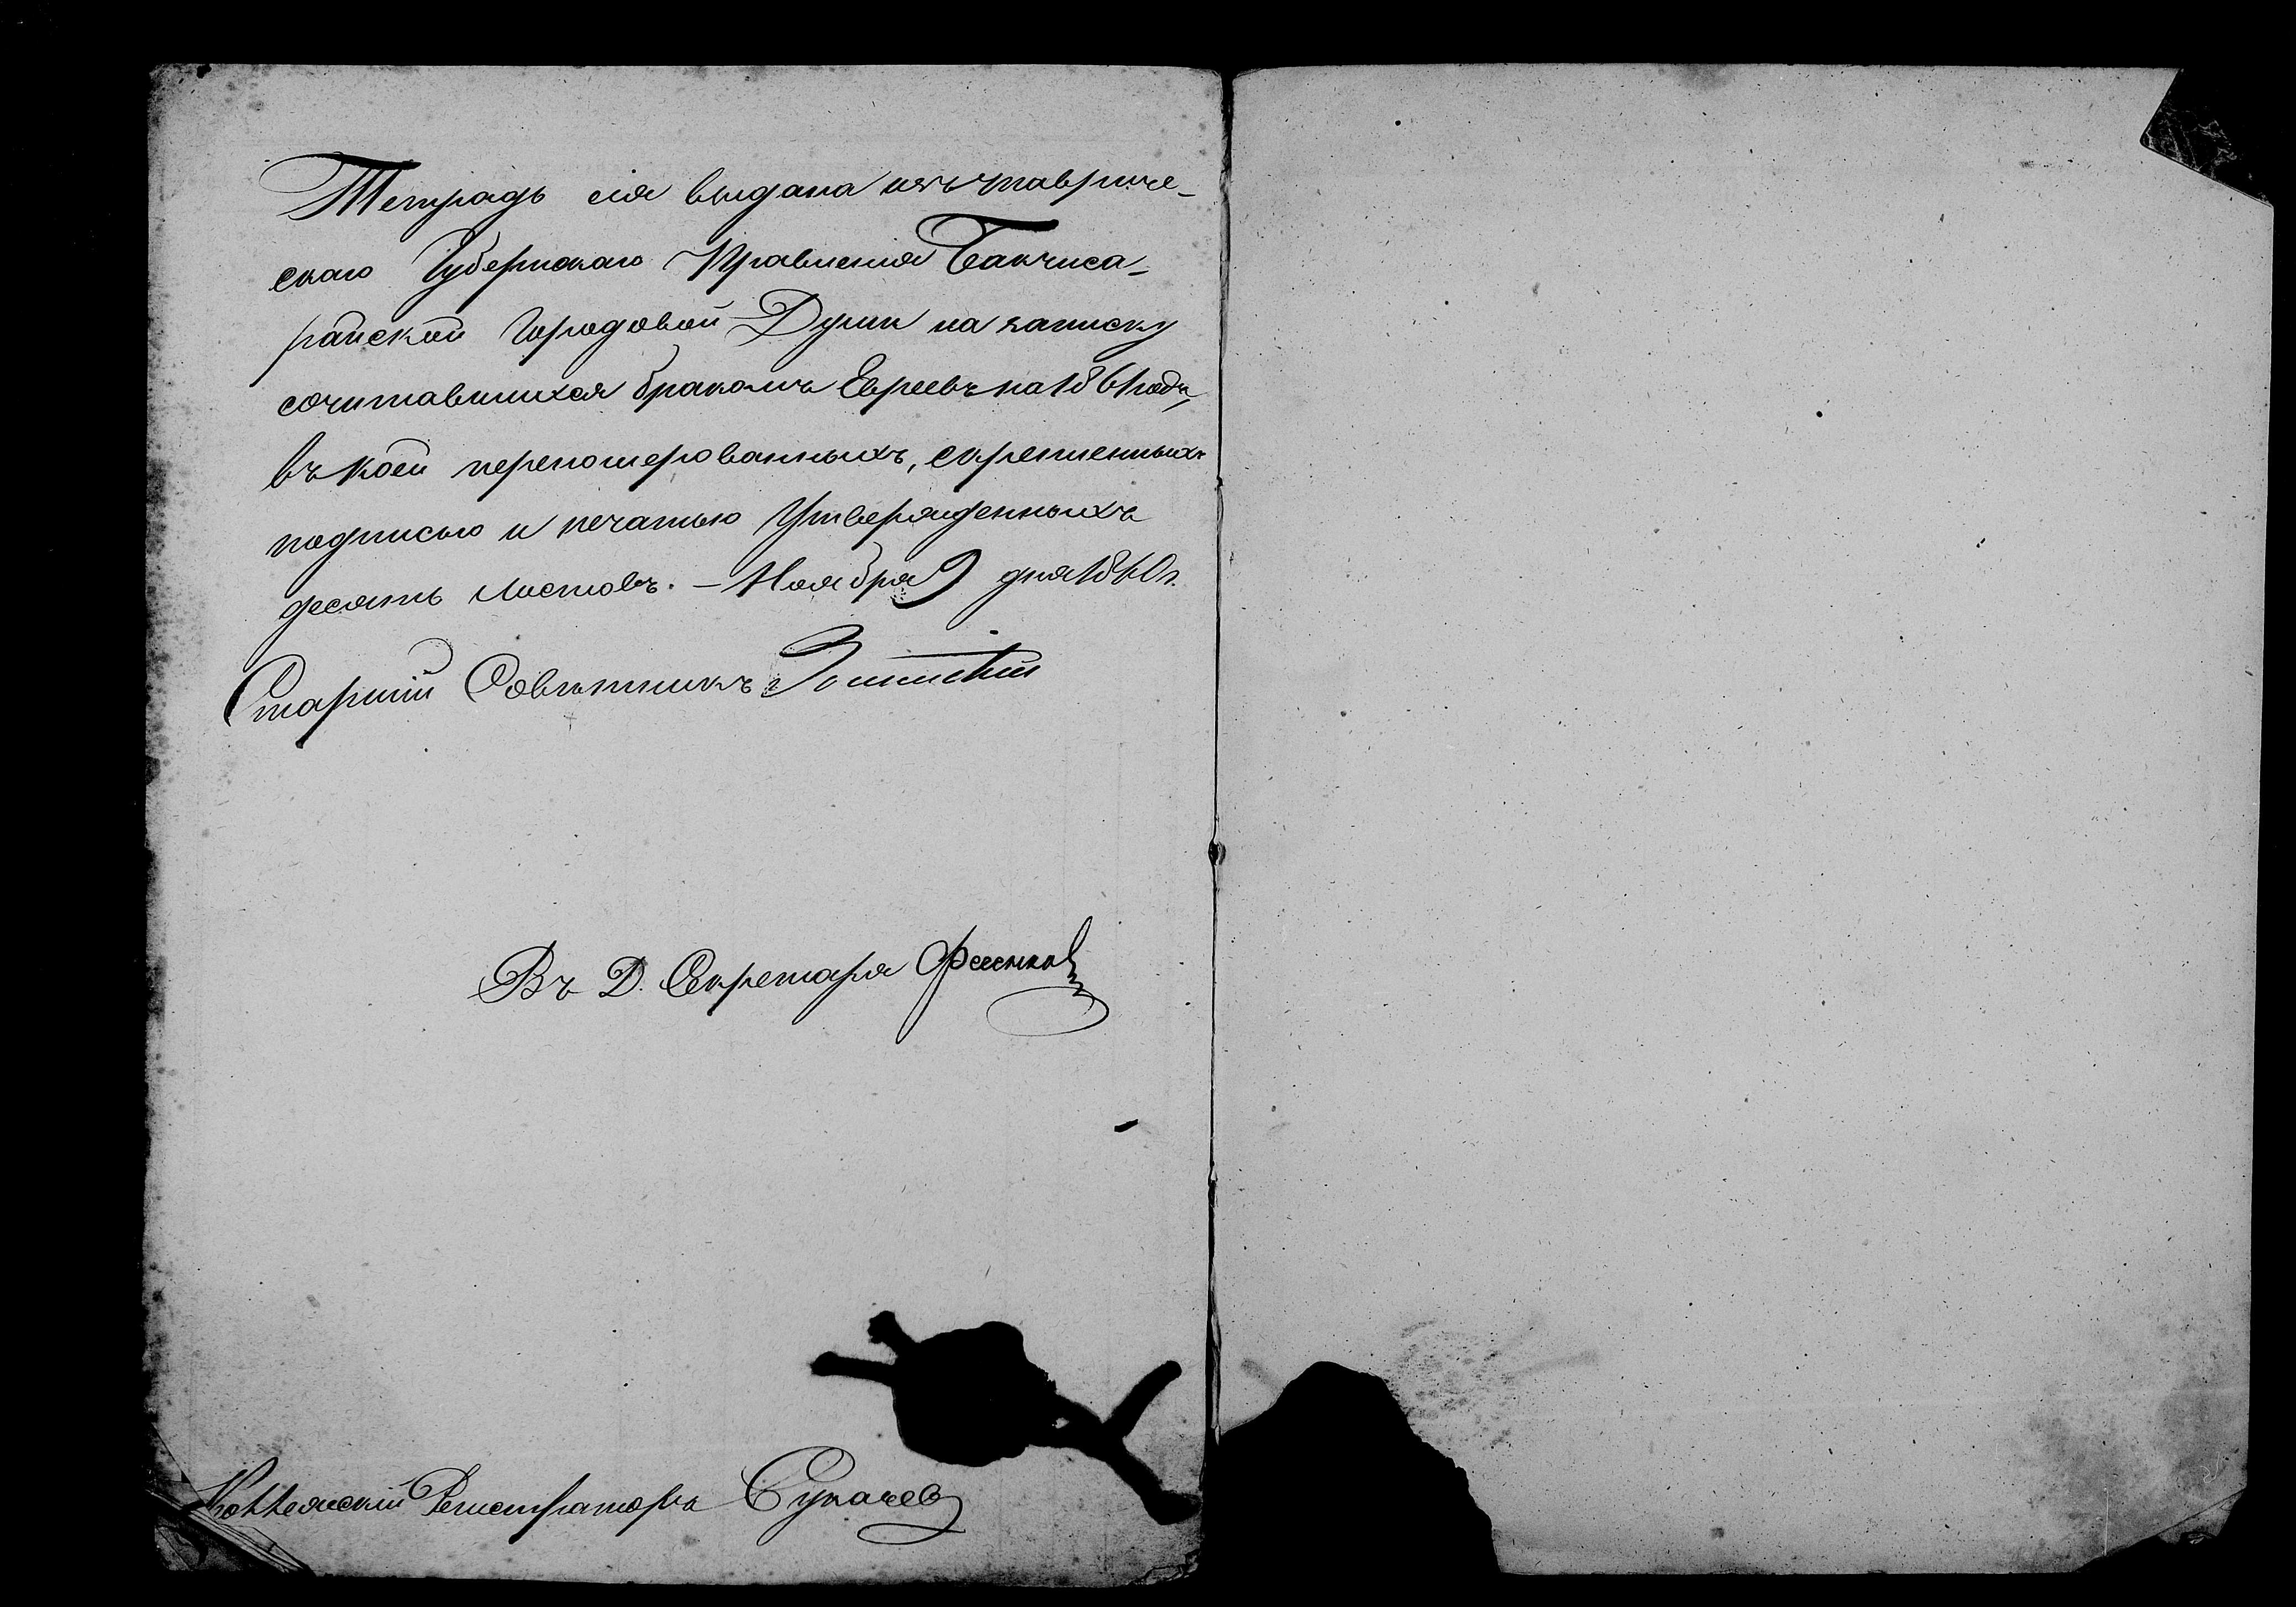 Тетрадь сія выдана изъ тавриче-
скаго Губернскаго Правленія Бакчиса-
райской Городовой Думы на записку
сочитавшихся бракомъ Евреевъ на 1861 годъ,
въ коей перепомерованныхъ, скрепленныхъ
подписью и печатью Утвержденныхъ
десять листовъ. – Ноября 9 дня 1860 г.
Старшій Совѣтникъ
Въ Д. Секретаря
Коллежскій Регистраторъ Сукачев